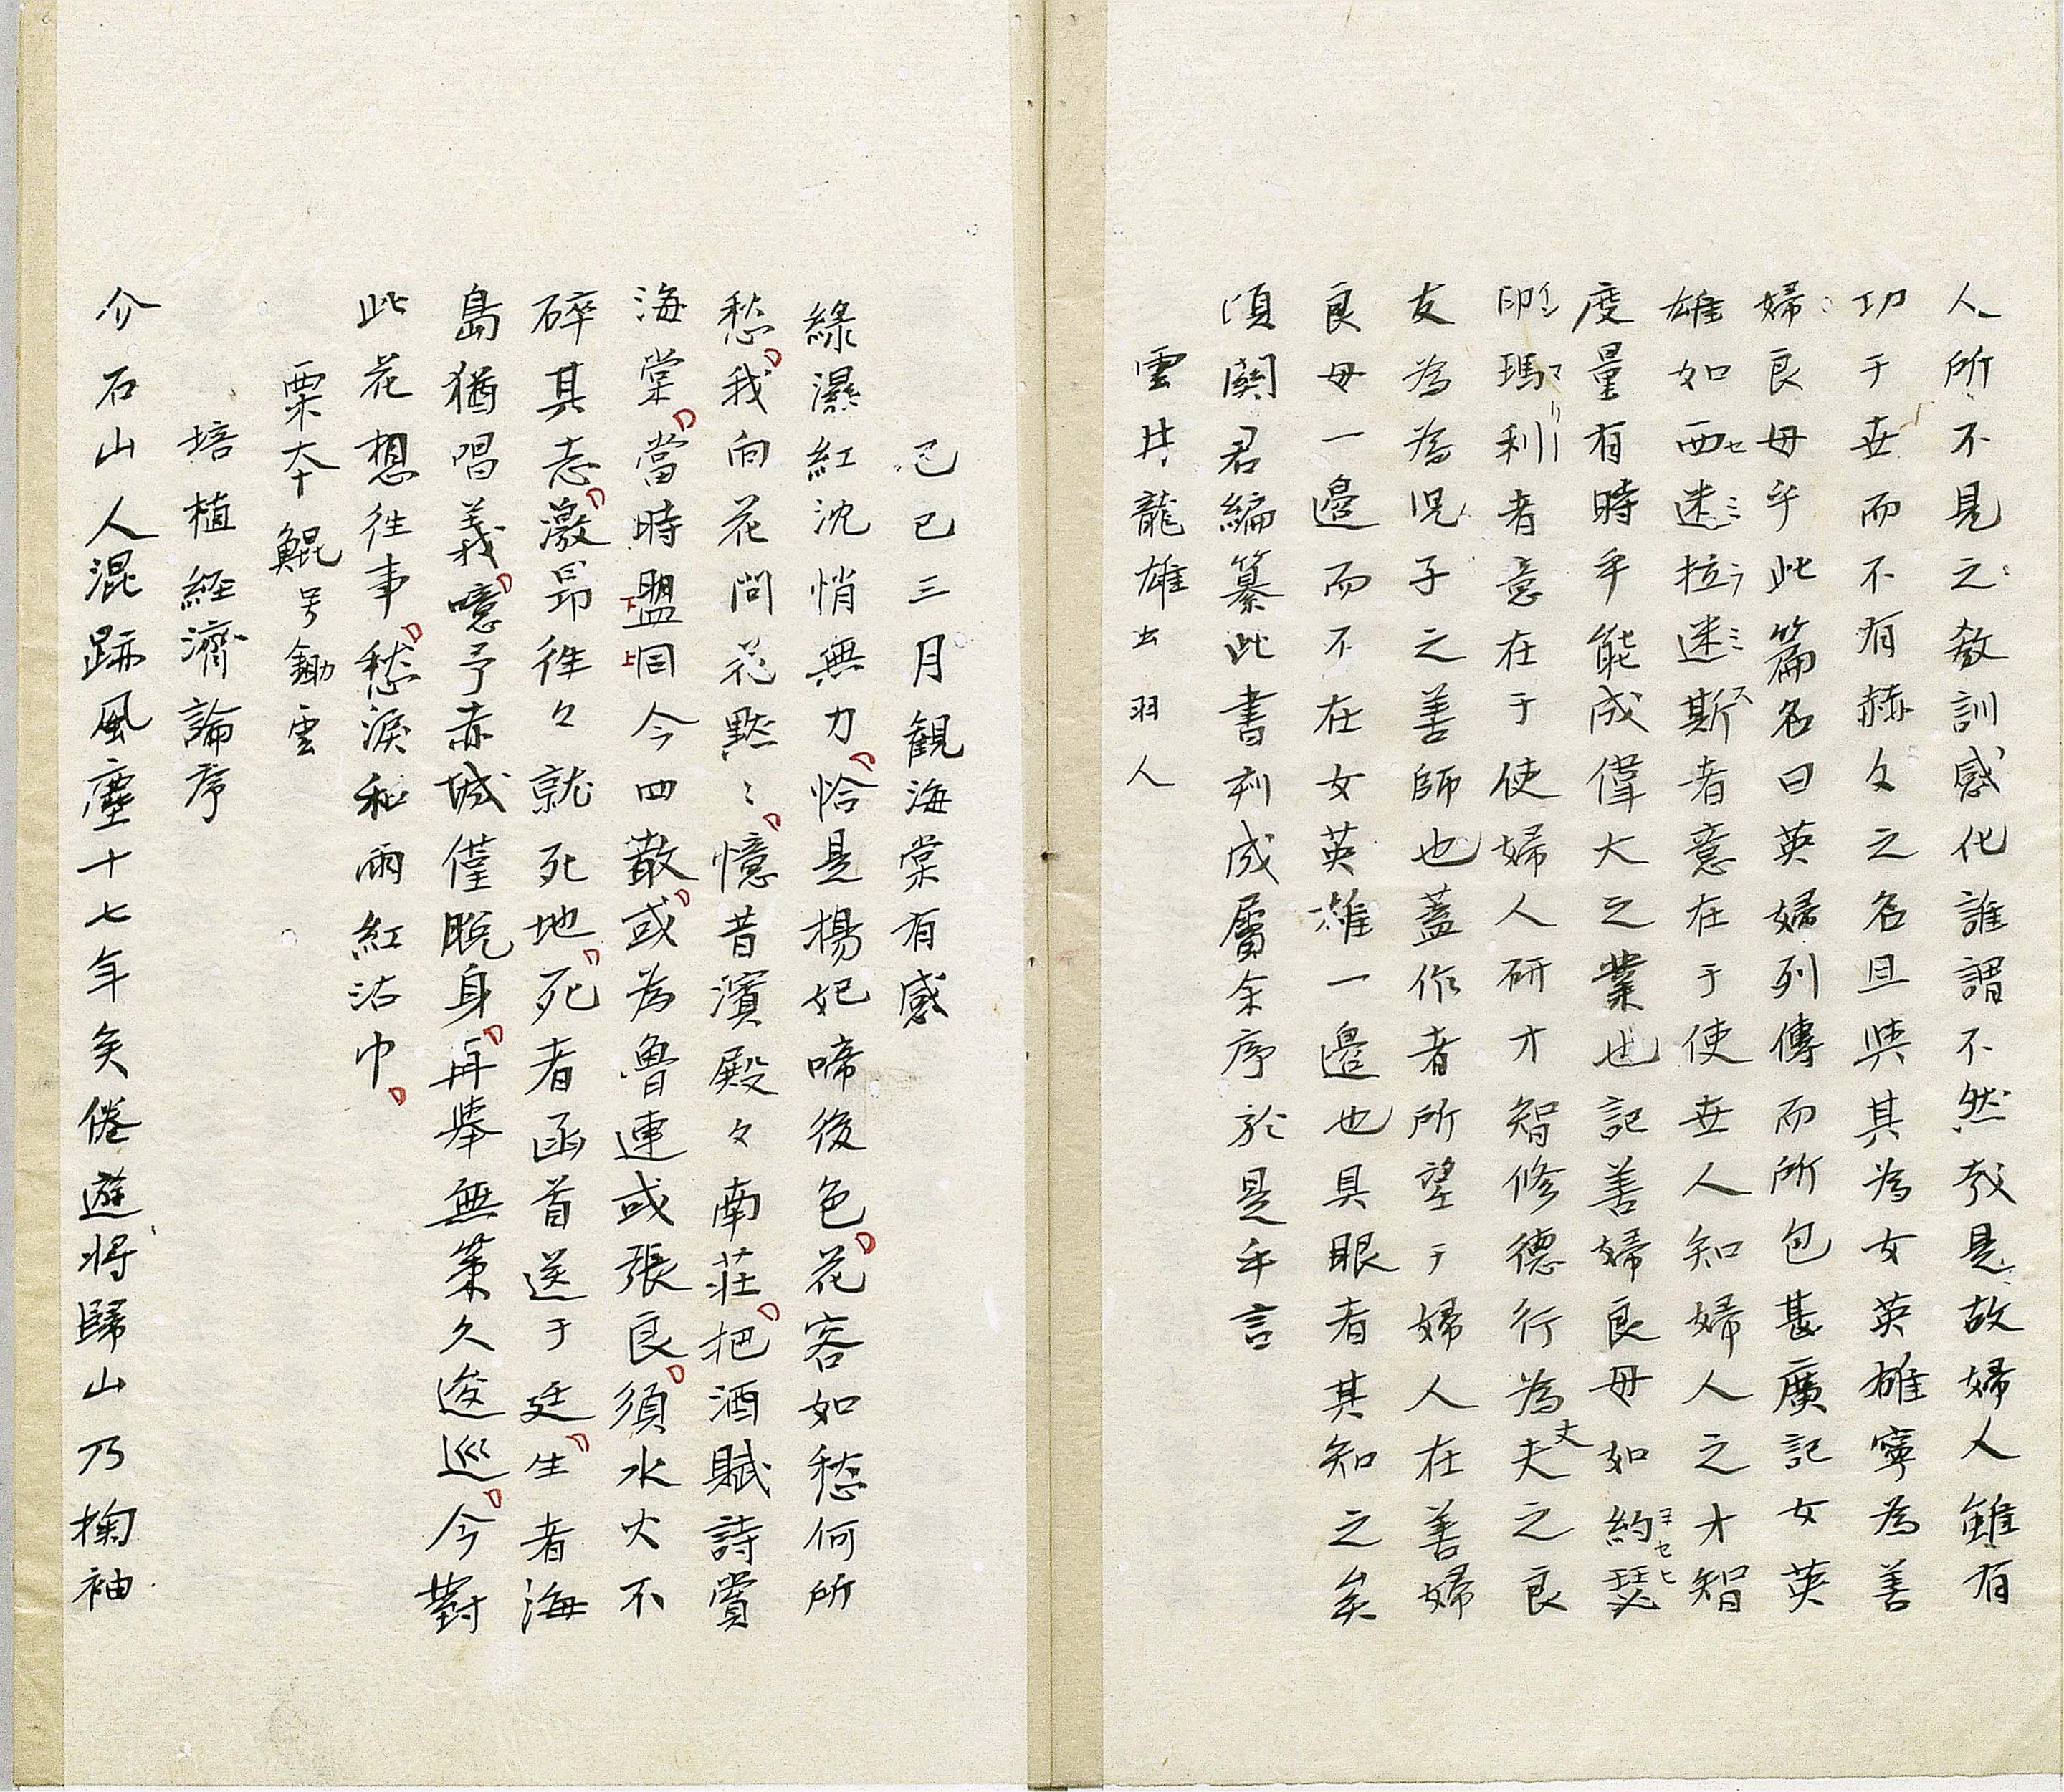 人所不見之教訓感化誰謂不然哉是故婦人雖有
功于世而不有赫々之名且與其為女英雄寧為善
婦良母乎此篇名曰英婦列傳而所包甚廣記女英
雄如西迷拉迷斯者意在于使世人知婦人之才智
度量有時乎能成偉大之業也記善婦良母如約瑟
印瑪利者意在于使婦人研才智修德行為夫之良
友為為児子之善師也蓋作者所望于婦人在善婦
良母一邊而不在女英雄一邊也具眼者其知之矣
頃関君編纂此書刻成属余序於是乎言
雲井龍雄 羽人
己巳三月観海棠有感
緑濕紅沈悄無力恰是楊妃啼後色花容如愁何所
愁我向花問花黙〻憶昔濱殿々南荘把酒賦詩賞
海棠當時盟同今四散或為魯連或張良須水火不
碎其志激昂徃々就死地死者函首送于廷生者海
島猶唱義噫予赤城僅脱身再挙無策久逡巡今對
此花想徃事愁涙和雨紅沾巾
栗本鯤号鋤雲
培植経濟論序
介石山人混跡風塵十七年矣倦遊将歸山乃掬袖